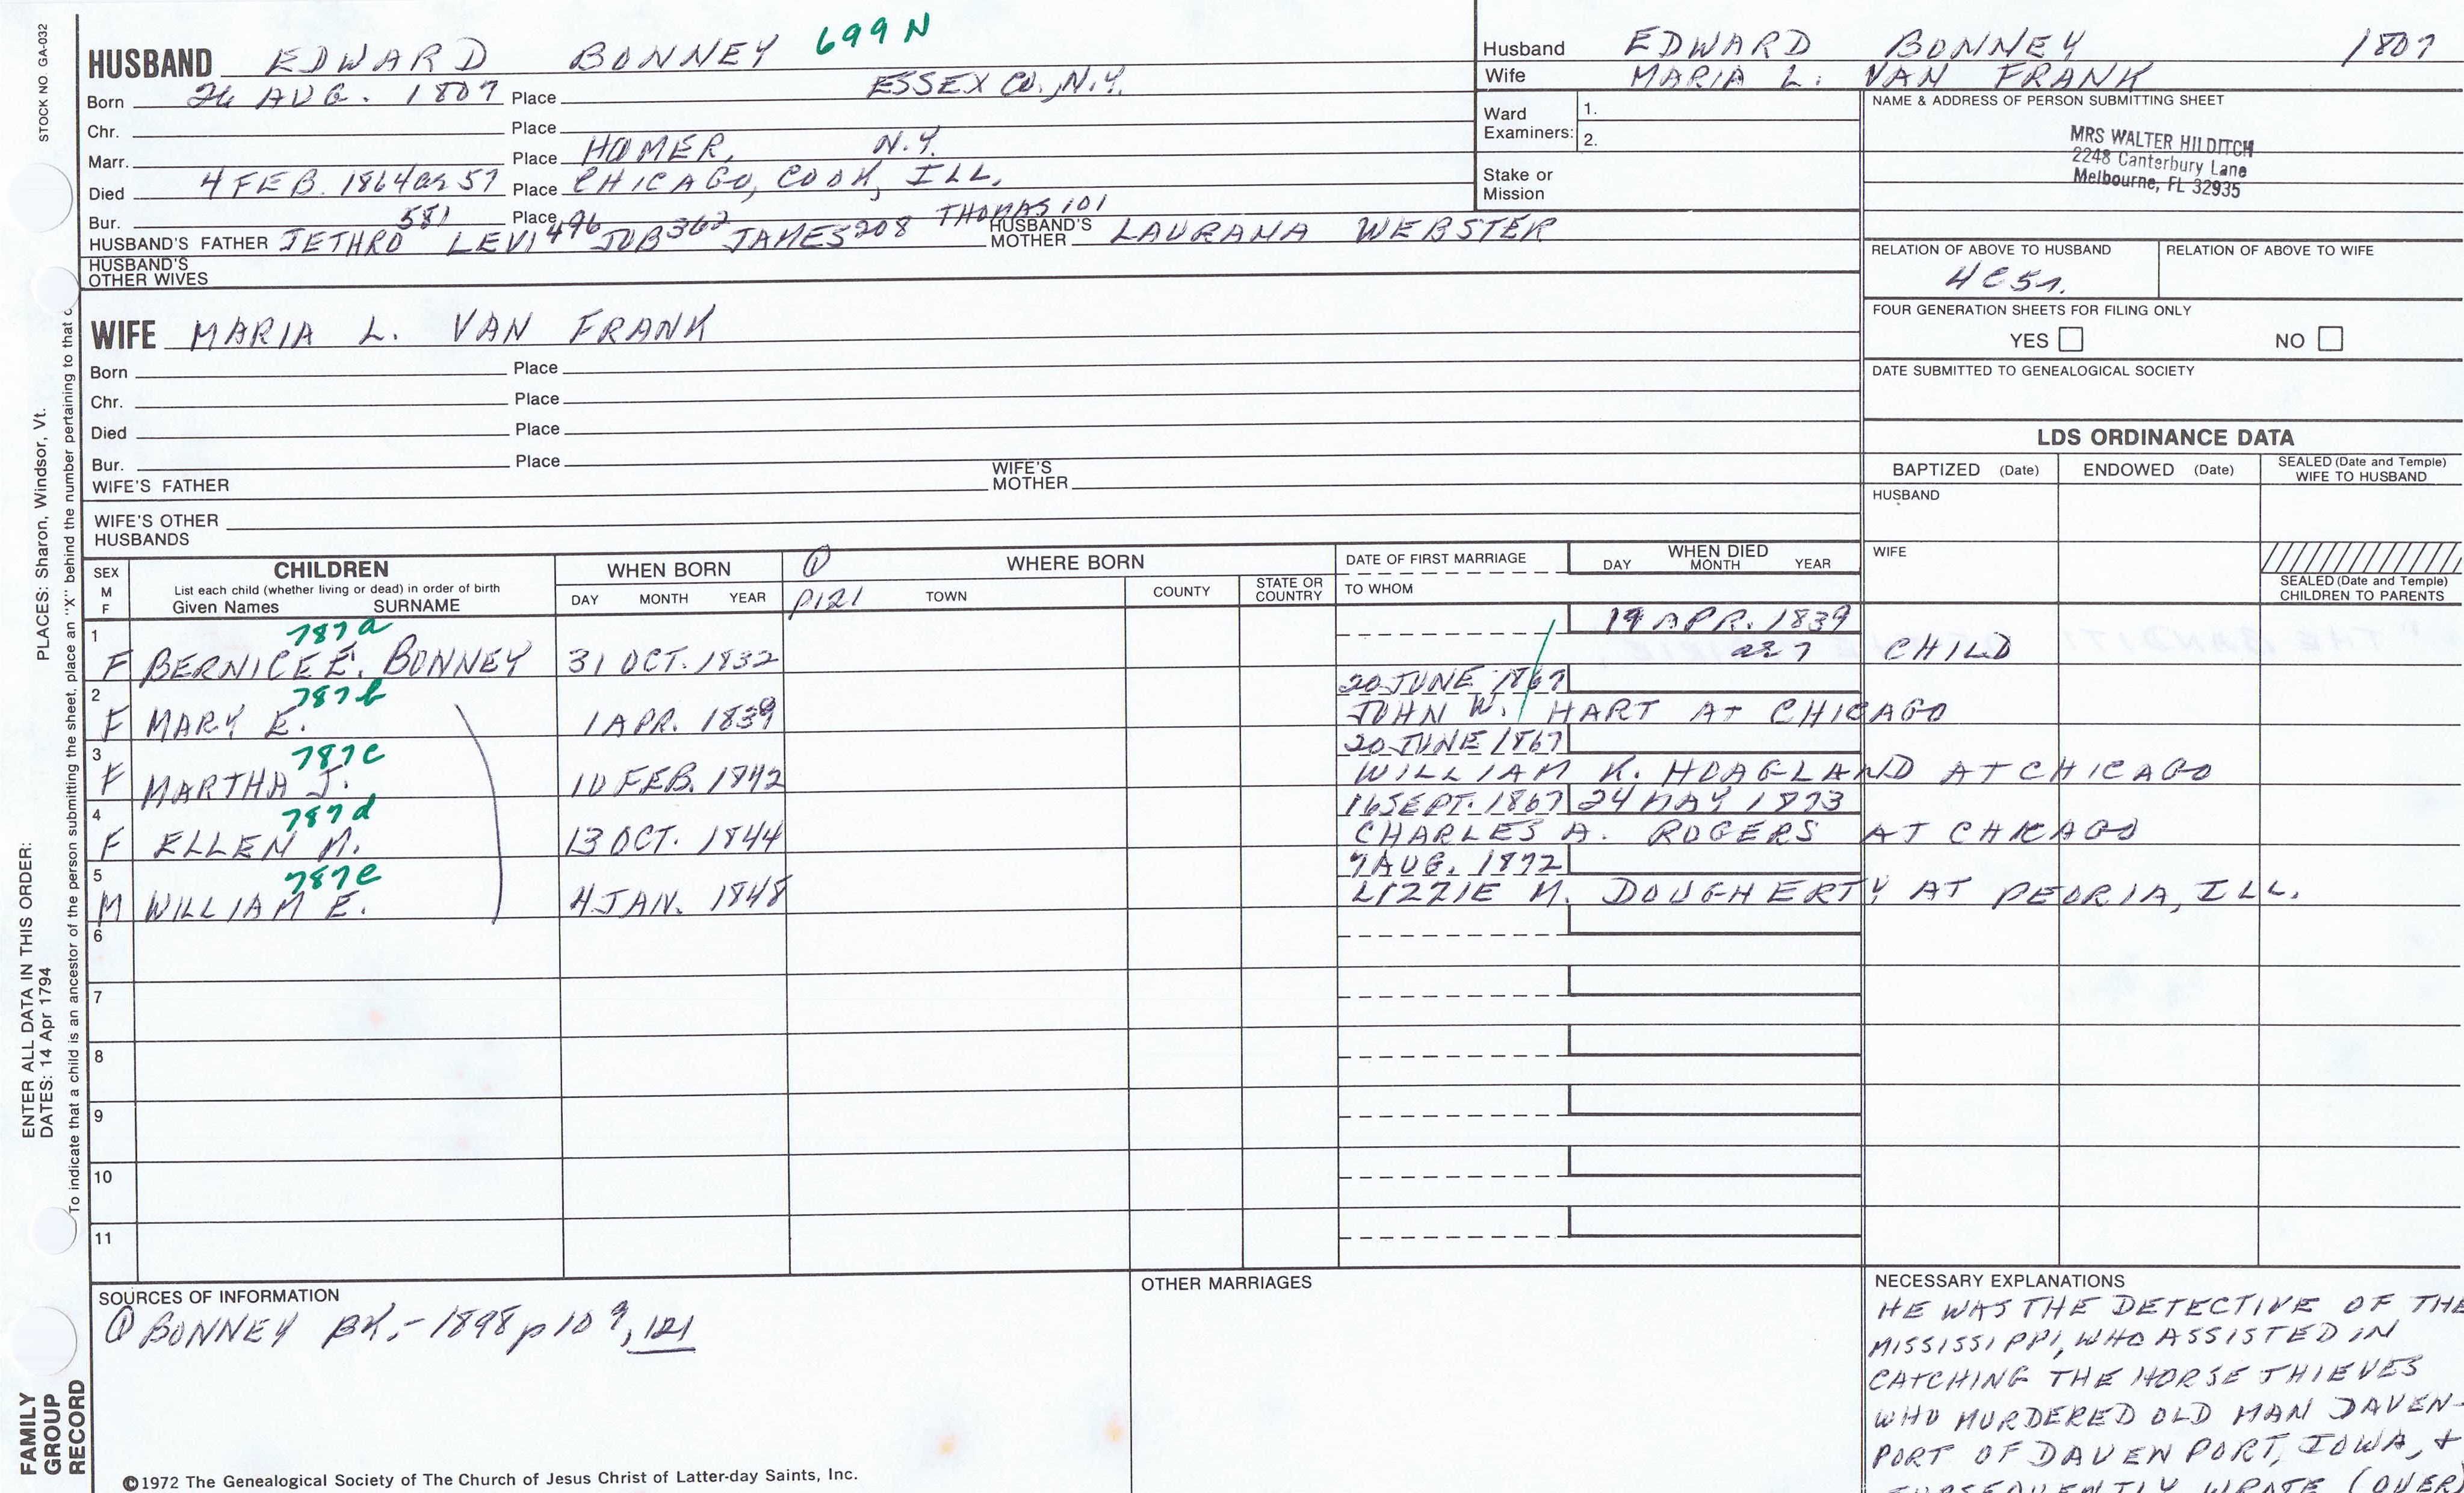 STOCK NO GA-032
HUSBAND EDWARD BONNEY 699N
Born 26 AUG. 1807 Place ESSEX CO., N.Y.
Chr. Place
Marr. Place HOMER, N.Y.
Died 4 FEB. 1864 ae 57 Place CHICAGO, COOK, ILL.
Bur. Place
581 496 362 208 THOMAS 101
HUSBAND'S FATHER JETHRO LEVI JOB JAMES HUSBAND'S MOTHER LAURANA WEBSTER
HUSBAND'S OTHER WIVES
Husband EDWARD BONNEY 1807
Wife MARIA L. VAN FRANK
Ward Examiners: 1.
2.
Stake or Mission
NAME & ADDRESS OF PERSON SUBMITTING SHEET
MRS WALTER HILDITCH
2248 Canterbury Lane
Melbourne, FL 32935
RELATION OF ABOVE TO HUSBAND RELATION OF ABOVE TO WIFE
4C5r.
FOUR GENERATION SHEETS FOR FILING ONLY
YES NO
DATE SUBMITTED TO GENEALOGICAL SOCIETY
WIFE MARIA L. VAN FRANK
Born Place
Chr. Place
Died Place
Bur. Place
WIFE'S FATHER WIFE'S MOTHER
WIFE'S OTHER HUSBANDS
LDS ORDINANCE DATA
BAPTIZED (Date) ENDOWED (Date) SEALED (Date and Temple) WIFE TO HUSBAND
HUSBAND
WIFE
SEALED (Date and Temple) CHILDREN TO PARENTS
SEX M F
CHILDREN
List each child (whether living or dead) in order of birth
Given Names SURNAME
WHEN BORN
DAY MONTH YEAR
① WHERE BORN
P121 TOWN COUNTY STATE OR COUNTRY
DATE OF FIRST MARRIAGE
TO WHOM
WHEN DIED
DAY MONTH YEAR
1 787a 19 APR. 1839
F BERNICE E. BONNEY 31 OCT. 1832 ae 7 CHILD
2 787b 20 JUNE 1867
F MARY E. 1 APR. 1839 JOHN W. HART AT CHICAGO
3 787c 20 JUNE 1867
F MARTHA J. 10 FEB. 1842 WILLIAM K. HOAGLAND AT CHICAGO
4 787d 16 SEPT. 1867 24 MAY 1873
F ELLEN M. 13 OCT. 1844 CHARLES A. ROGERS AT CHICAGO
5 787e 7 AUG. 1872
M WILLIAM E. 4 JAN. 1848 LIZZIE M. DOUGHERTY AT PEORIA, ILL.
6
7
8
9
10
11
SOURCES OF INFORMATION
① BONNEY BK.- 1898 p 109, 121
OTHER MARRIAGES
NECESSARY EXPLANATIONS
HE WAS THE DETECTIVE OF THE
MISSISSIPPI, WHO ASSISTED IN
CATCHING THE HORSE THIEVES
WHO MURDERED OLD MAN DAVEN-
PORT OF DAVENPORT, IOWA, +
SUBSEQUENTLY WROTE (OVER)
©1972 The Genealogical Society of The Church of Jesus Christ of Latter-day Saints, Inc.
FAMILY
GROUP
RECORD
ENTER ALL DATA IN THIS ORDER:
DATES: 14 Apr 1794
PLACES: Sharon, Windsor, Vt.
To indicate that a child is an ancestor of the person submitting the sheet, place an "X" behind the number pertaining to that